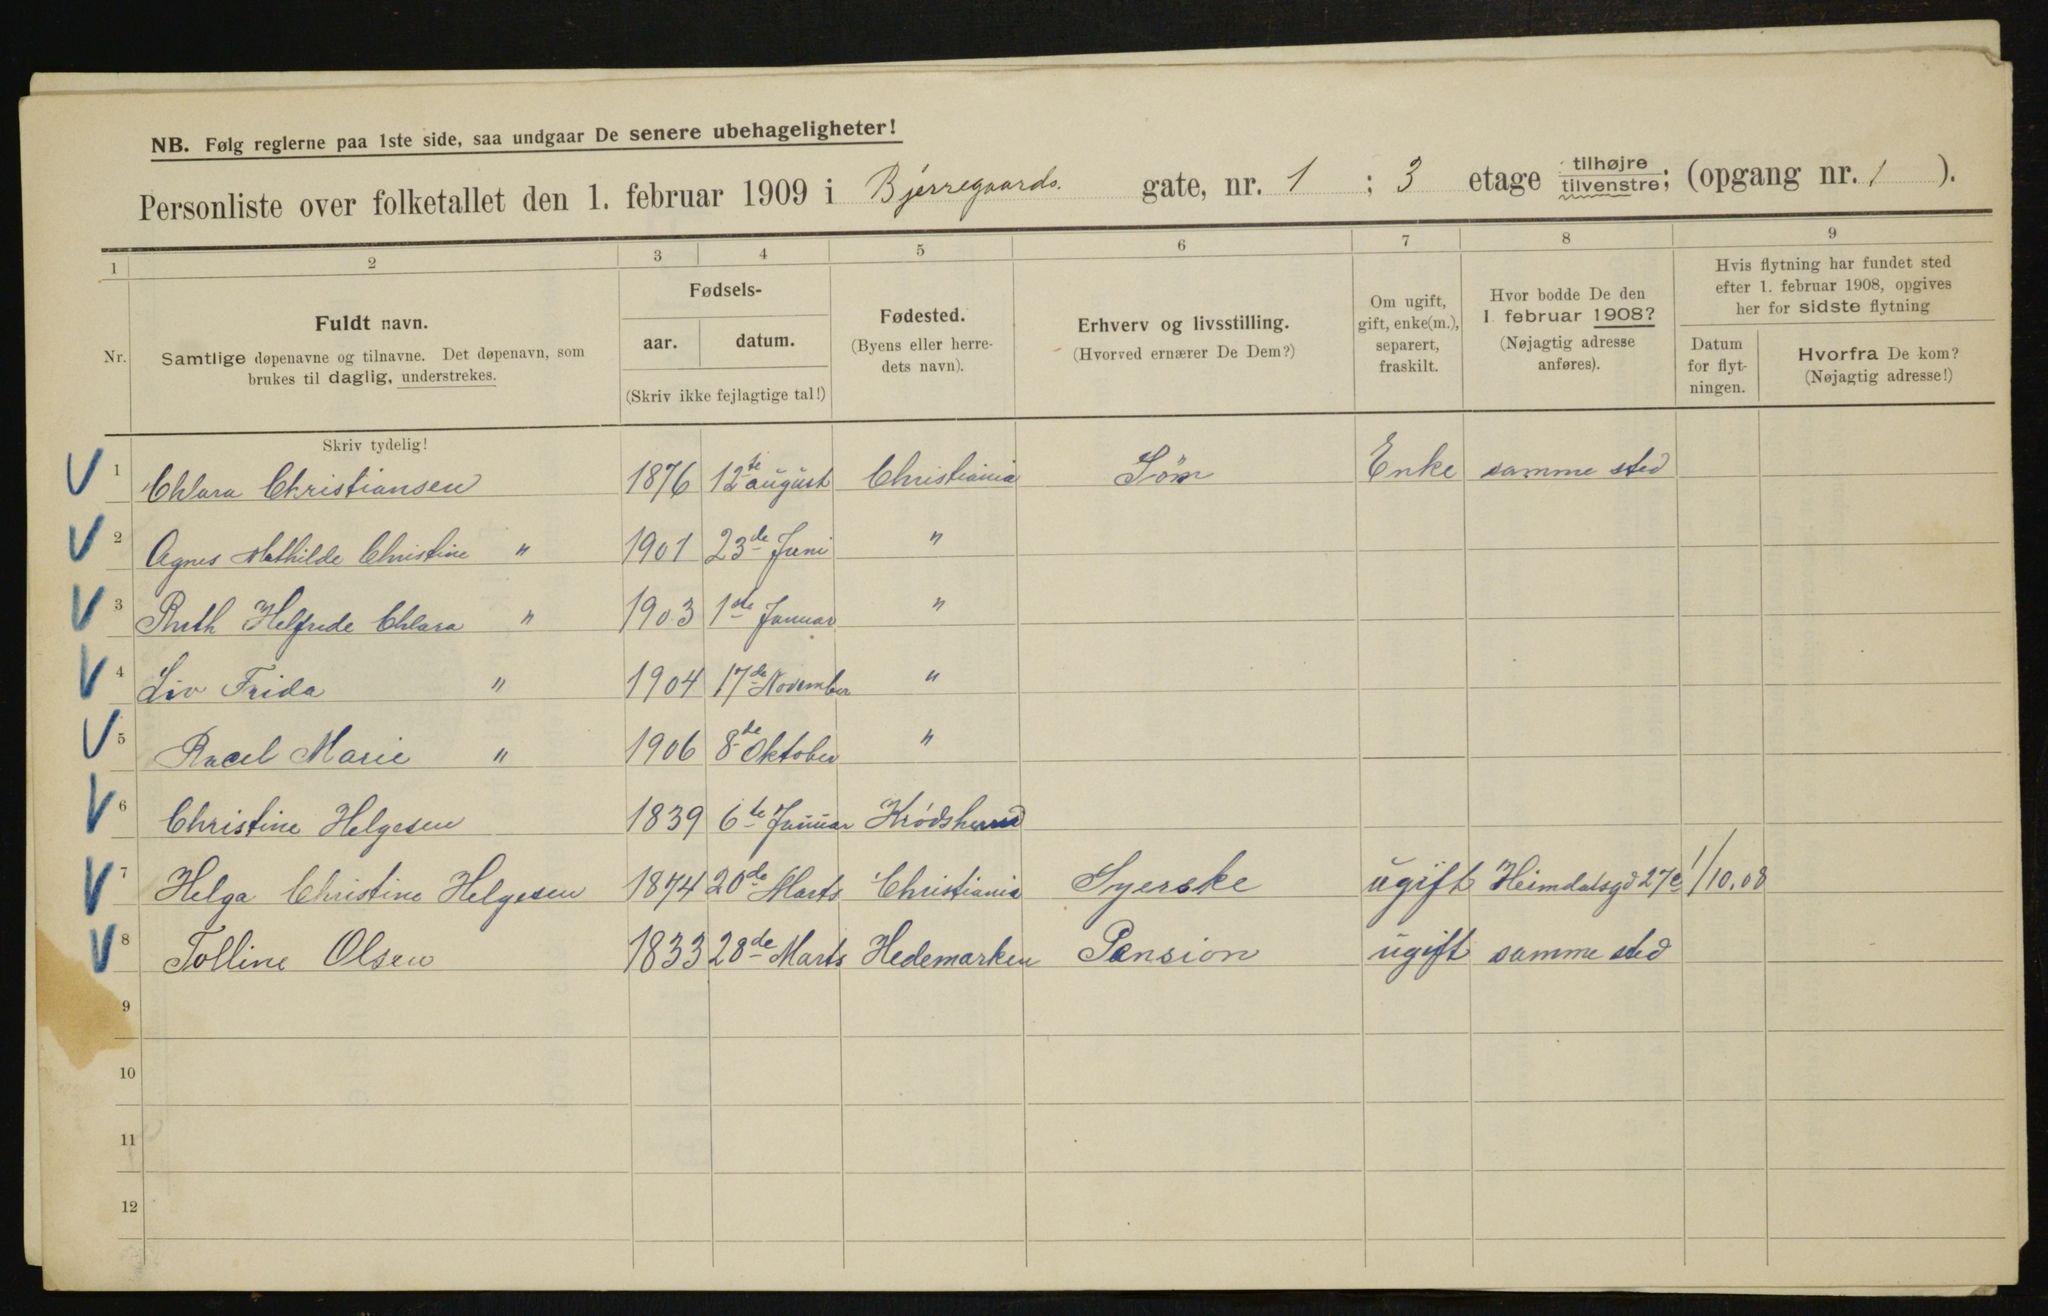 NB. Følg reglerne paa 1ste side, saa undgaar De senere ubehageligheter!
Personliste over folketallet den 1. februar 1909 i Bjerregaards. gate, nr. 1 ; 3 etage tilhøjre tilvenstre; (opgang nr. 1 ).
1 2 3 4 5 6 7 8 9
Nr.
Fuldt navn.
Samtlige døpenavne og tilnavne. Det døpenavn, som
brukes til daglig, understrekes.
Fødsels-
aar. datum.
(Skriv ikke fejlagtige tal!)
Fødested.
(Byens eller herre-
dets navn).
Erhverv og livsstilling.
(Hvorved ernærer De Dem?)
Om ugift,
gift, enke(m.),
separert,
fraskilt.
Hvor bodde De den
1. februar 1908?
(Nøjagtig adresse
anføres).
Hvis flytning har fundet sted
efter 1. februar 1908, opgives
her for sidste flytning
Datum
for flyt-
ningen.
Hvorfra De kom?
(Nøjagtig adresse!)
Skriv tydelig!
1 Chlara Christiansen 1876 12te august Christiania Søm Enke samme sted
2 Agnes Mathilde Christine " 1901 23de Juni "
3 Ruth Helfride Chlara " 1903 1ste Januar "
4 Liv Frida " 1904 17de November "
5 Racel Marie " 1906 8de Oktober "
6 Christine Helgesen 1839 6te Januar Krødsherred
7 Helga Christine Helgesen 1874 20de Marts Christiania Syerske ugift Heimdalsgd 27c 1/10.08
8 Tolline Olsen 1833 28de Marts Hedemarken Pension ugift samme sted
9
10
11
12